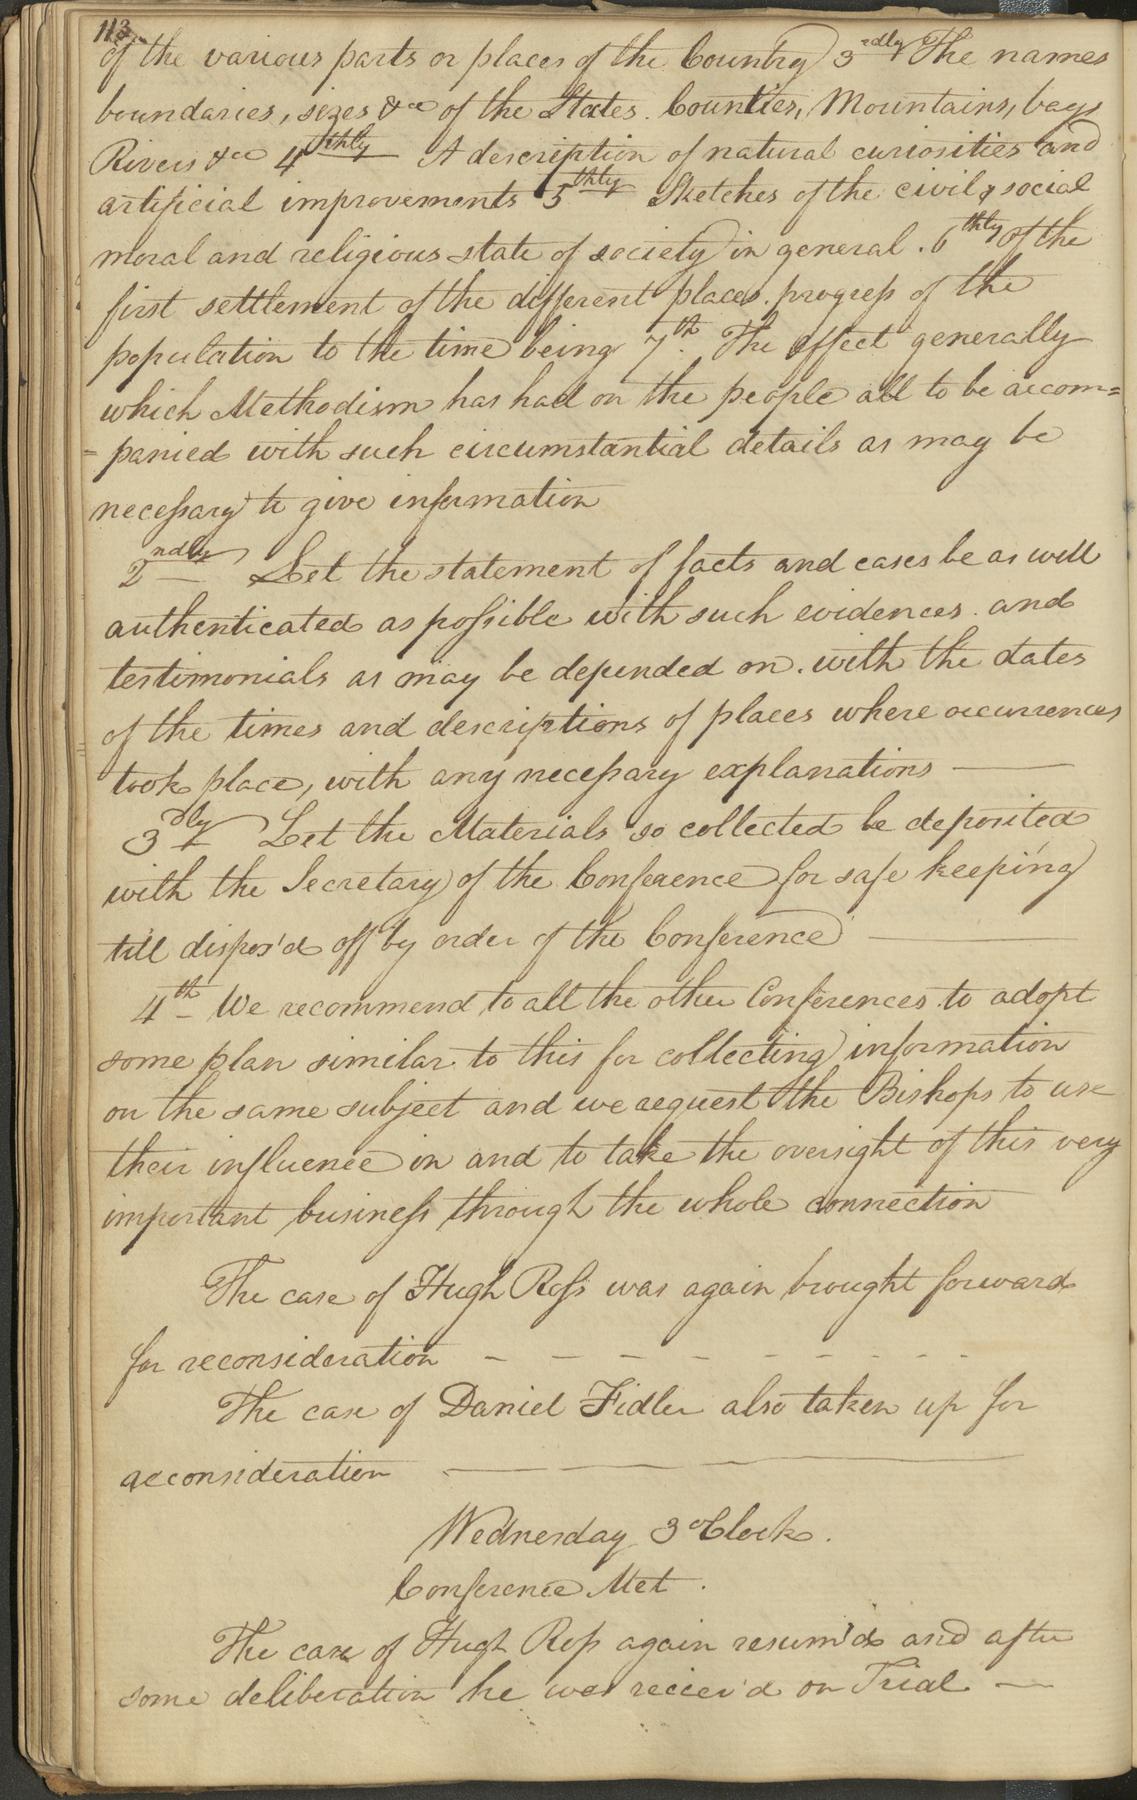 113
of the various parts or places of the Country 3rdly The names
boundaries, sizes &ca of the States. Counties, Mountains, bays
Rivers &ca 4thly A description of natural curiosities and
artificial improvements 5thly Sketches of the civil & social
moral and religious state of society in general. 6thly of the
first settlement of the different places. progress of the
population to the time being 7th. The effect generally
which Methodism has had on the people all to be accom=
=panied with such circumstantial details as may be
necessary to give information
2ndly Let the statement of facts and cases be as well
authenticated as possible with such evidences. and
testimonials as may be depended on. with the dates
of the times and descriptions of places where occurrences
took place, with any necessary explanations —
3dly Let the Materials so collected be deposited
with the Secretary of the Conference for safe keeping
till dispos'd off by order of the Conference —
4th – We recommend to all the other Conferences to adopt
some plan similar to this for collecting information
on the same subject and we request the Bishops to use
their influence in and to take the oversight of this very
important business through the whole connection
The case of Hugh Ross was again brought forward
for reconsideration – – – – – – – –
The case of Daniel Fidler also taken up for
reconsideration — — — —
Wednesday 3 oClock.
Conference Met.
The case of Hugh Ross again resum'd and after
some deliberation he was receiv'd on Trial —